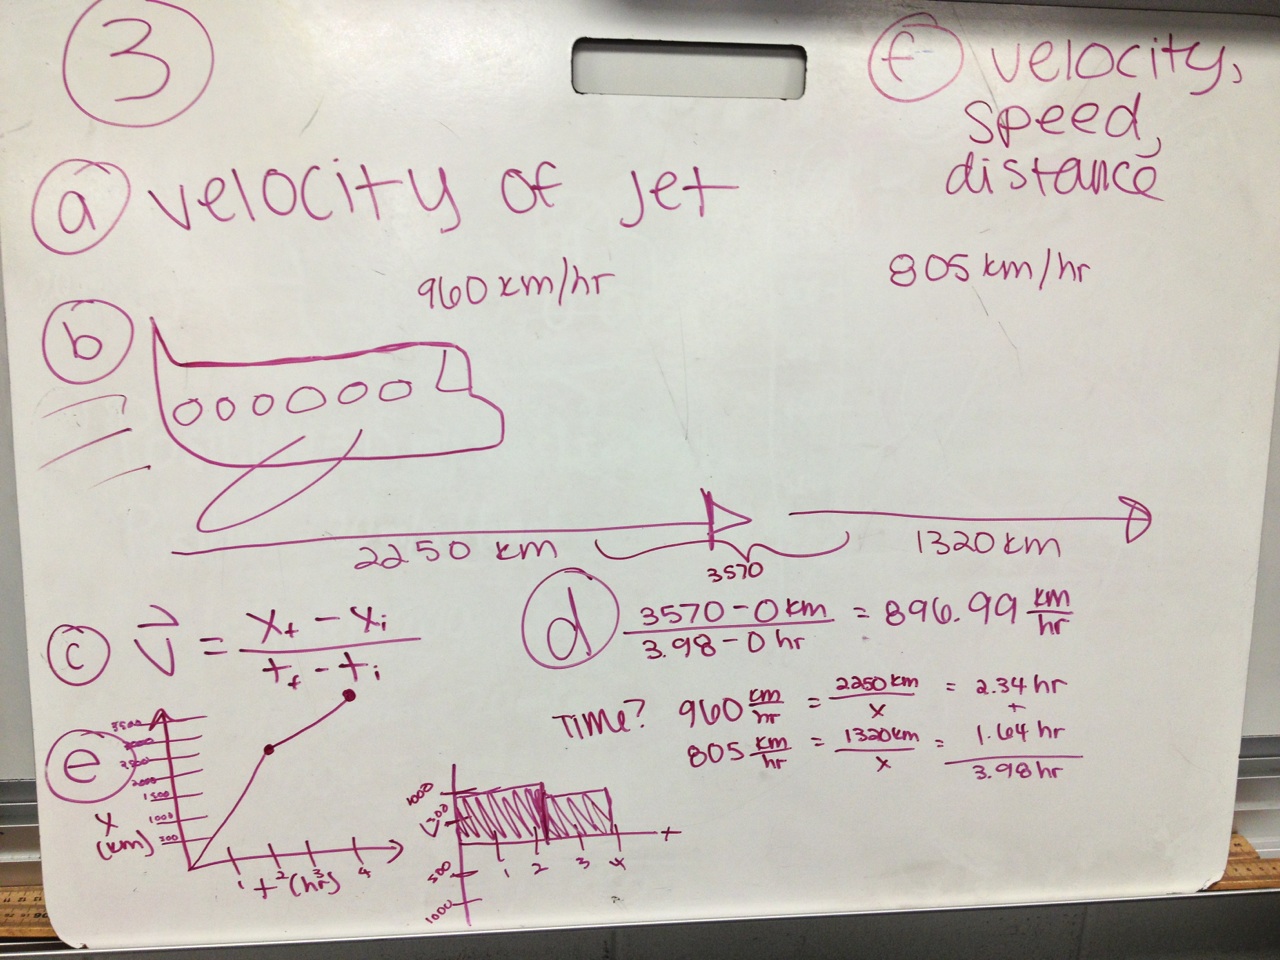 3
f velocity,
speed,
distance
a velocity of jet
960 km/hr
805 km/hr
b
2250 km
3570
1320 km
c V = xf - xi / tf - ti
d 3570 - 0 km / 3.98 - 0 hr = 896.99 km/hr
Time? 960 km/hr = 2250 km / x = 2.34 hr
+
805 km/hr = 1320 km / x = 1.64 hr
3.98 hr
e
3500
3000
2500
2000
1500
1000
500
x
(km)
1 2 3 4
t (hr)
1000
500
v
t
1 2 3 4
500
1000